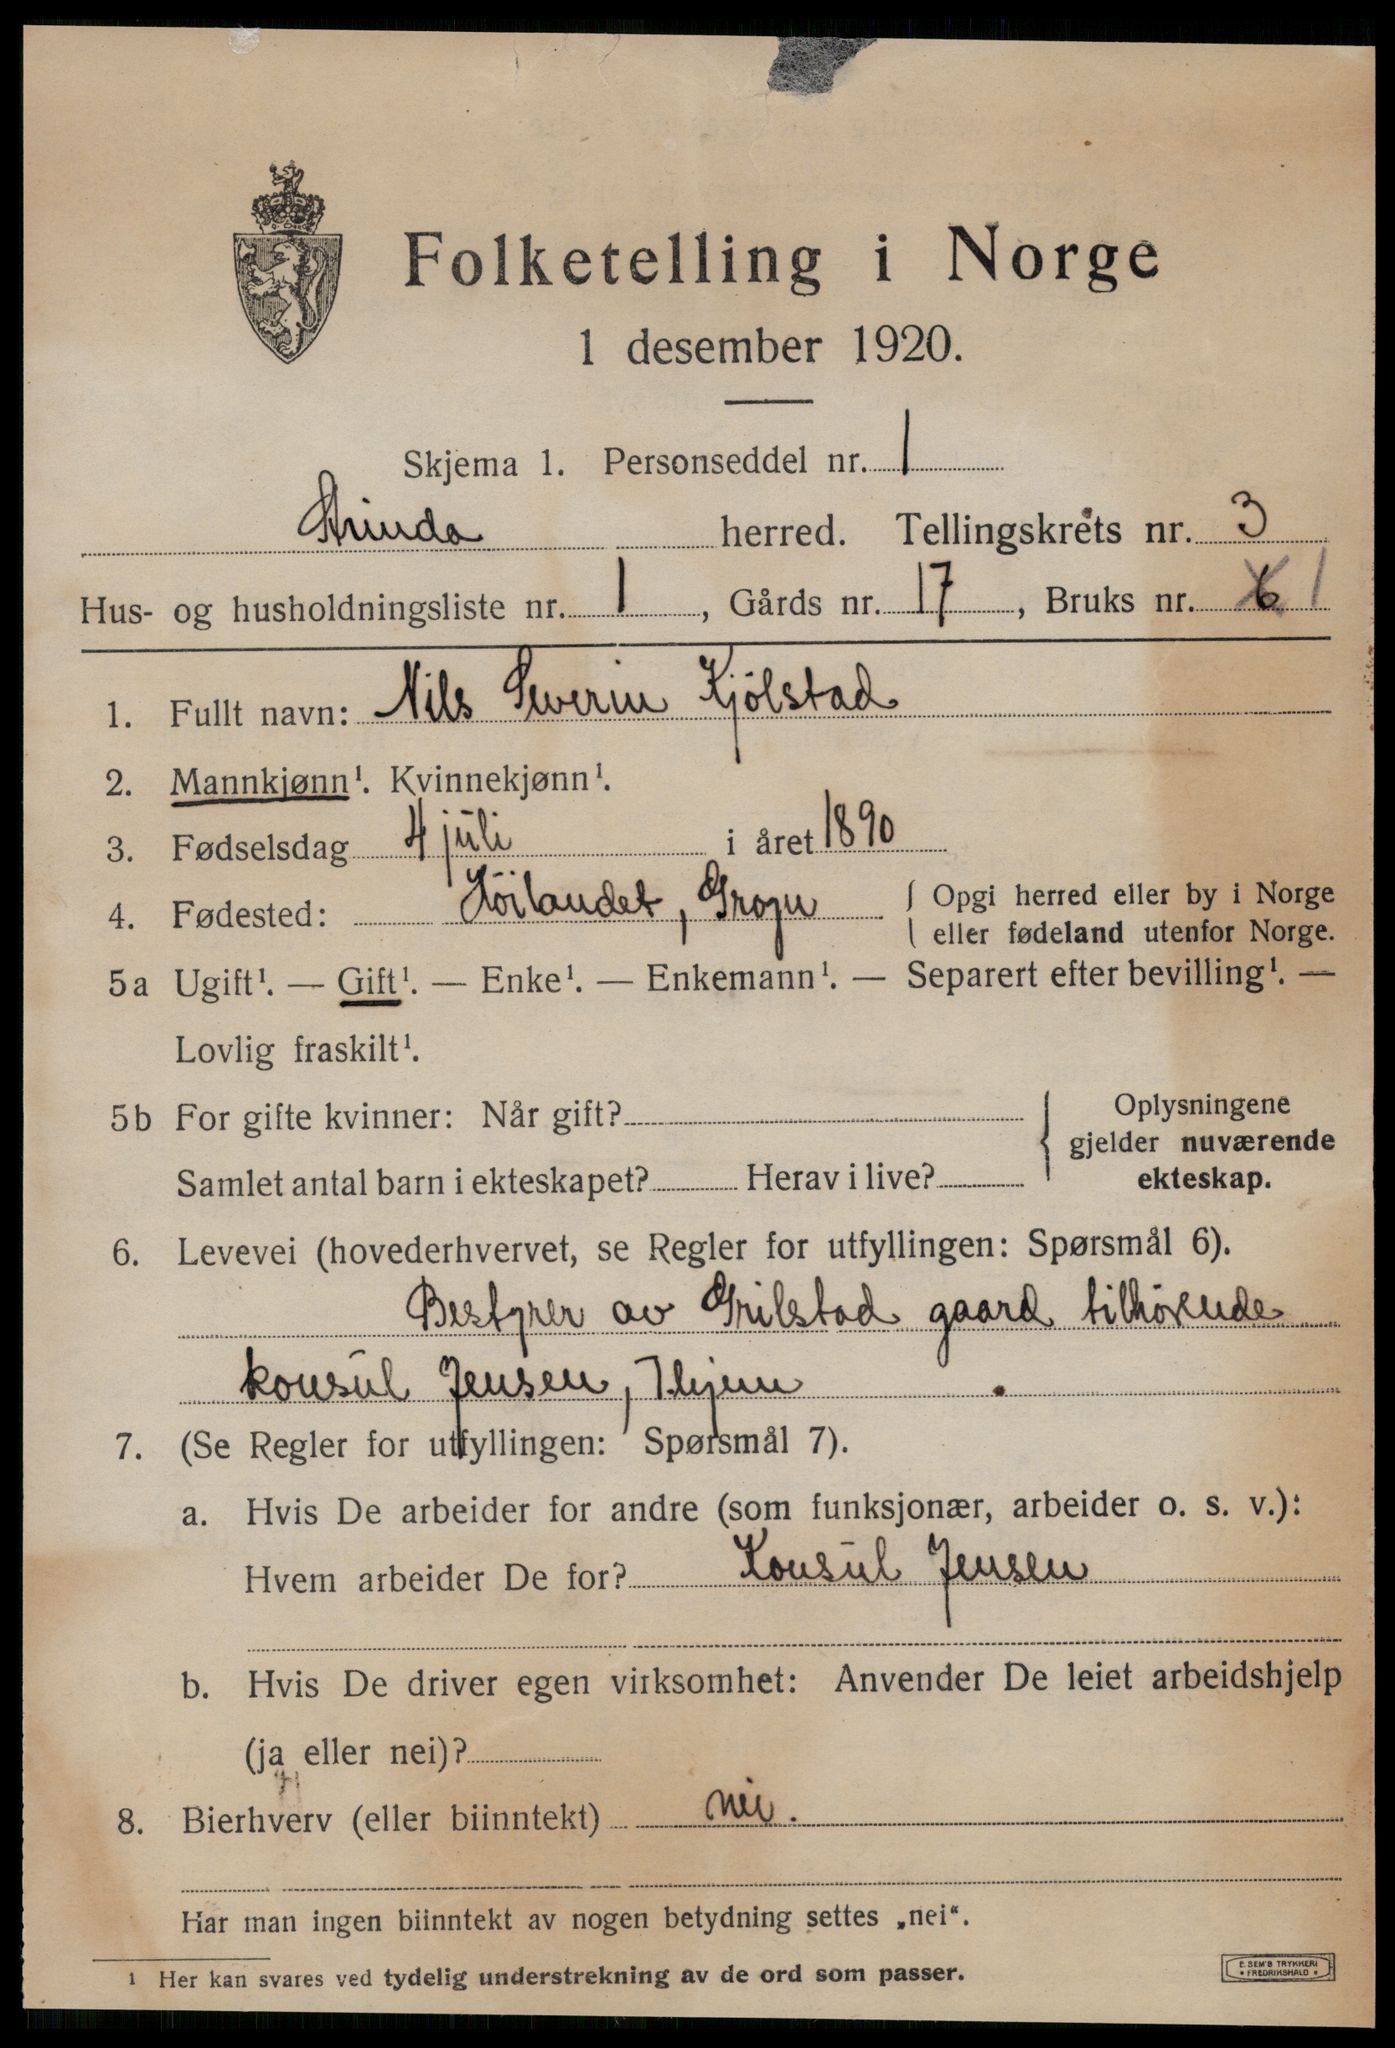 Folketelling i Norge
1 desember 1920.
Skjema 1. Personseddel nr. 1
Strinda herred. Tellingskrets nr. 3
Hus- og husholdningsliste nr. 1, Gårds nr. 17, Bruks nr. 6 1
1. Fullt navn: Nils Severin Kjölstad
2. Mannkjønn¹. Kvinnekjønn¹.
3. Fødselsdag 4 juli i året 1890
4. Fødested: Höilandet, Grogn { Opgi herred eller by i Norge
eller fødeland utenfor Norge.
5a Ugift¹. — Gift¹. — Enke¹. — Enkemann¹. — Separert efter bevilling¹. —
Lovlig fraskilt¹.
5b For gifte kvinner: Når gift?
Samlet antal barn i ekteskapet? Herav i live?
Oplysningene
gjelder nuværende
ekteskap.
6. Levevei (hovederhvervet, se Regler for utfyllingen: Spørsmål 6).
Bestyrer av Grilstad gaard tilhörende
konsul Jensen, Thjem
7. (Se Regler for utfyllingen: Spørsmål 7).
a. Hvis De arbeider for andre (som funksjonær, arbeider o. s. v.):
Hvem arbeider De for? Konsul Jensen
b. Hvis De driver egen virksomhet: Anvender De leiet arbeidshjelp
(ja eller nei)?
8. Bierhverv (eller biinntekt) nei.
Har man ingen biinntekt av nogen betydning settes „nei“.
¹ Her kan svares ved tydelig understrekning av de ord som passer.
E. SEM'S TRYKKERI
FREDRIKSHALD